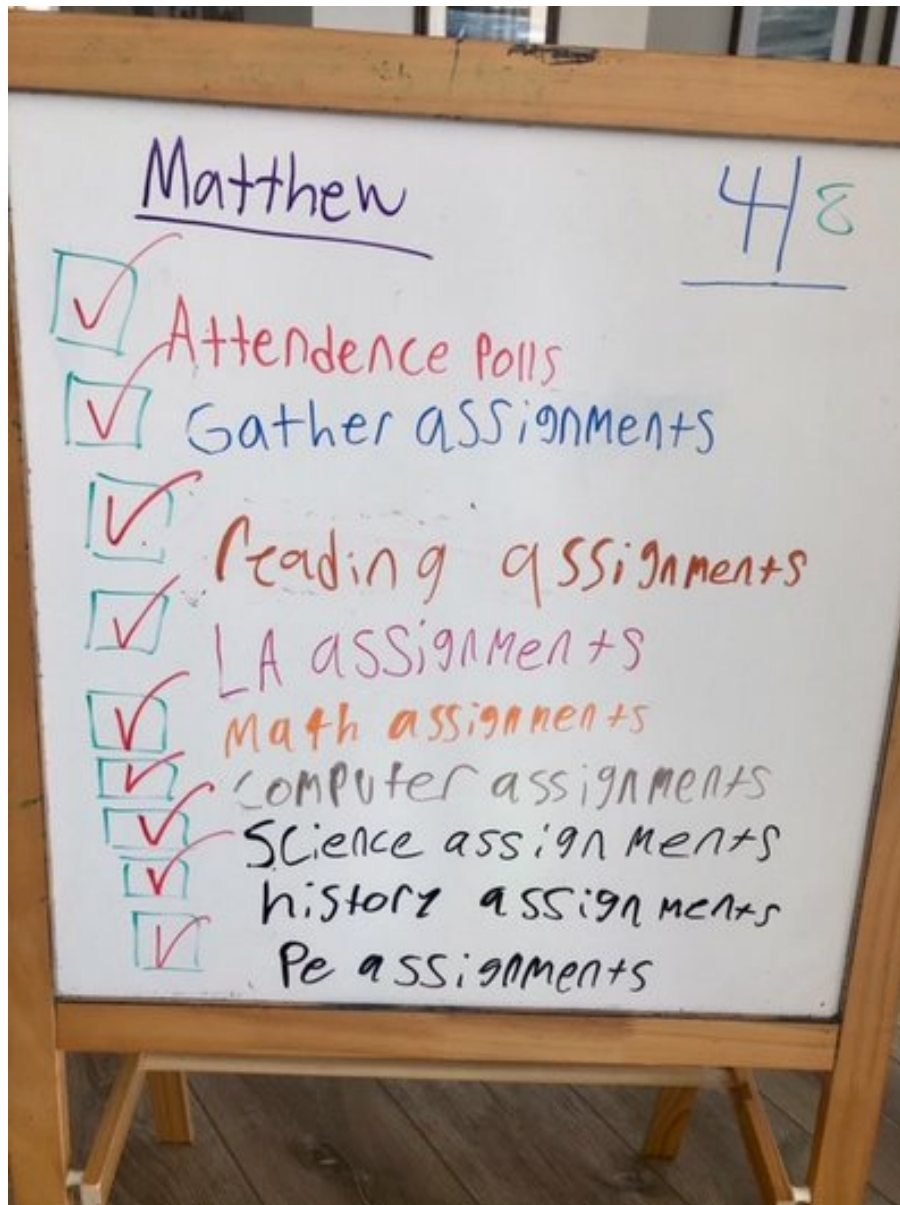 Matthew
4/8
Attendence Polls
Gather assignments
reading assignments
LA assignments
Math assignments
Computer assignments
Science assignments
history assignments
Pe assignments